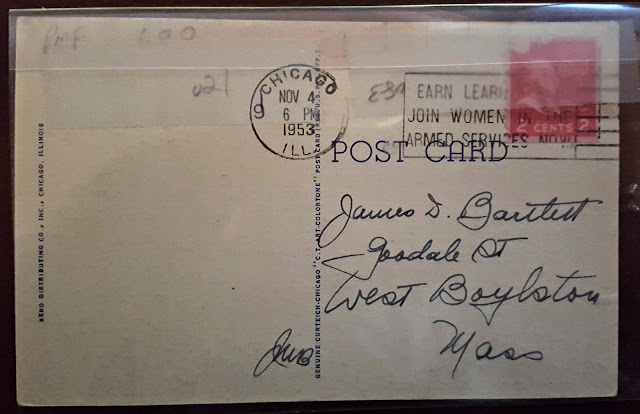 CHICAGO
9
NOV 4
6 PM
1953
ILL.
EARN LEARN
JOIN WOMEN IN THE
ARMED SERVICES NOW
2 CENTS 2
021
POST CARD
James D. Bartlett
Goodale St
West Boylston
Mass
JWB
AERO DISTRIBUTING CO., INC., CHICAGO, ILLINOIS
GENUINE CURTEICH-CHICAGO "C.T. ART-COLORTONE" POST CARD